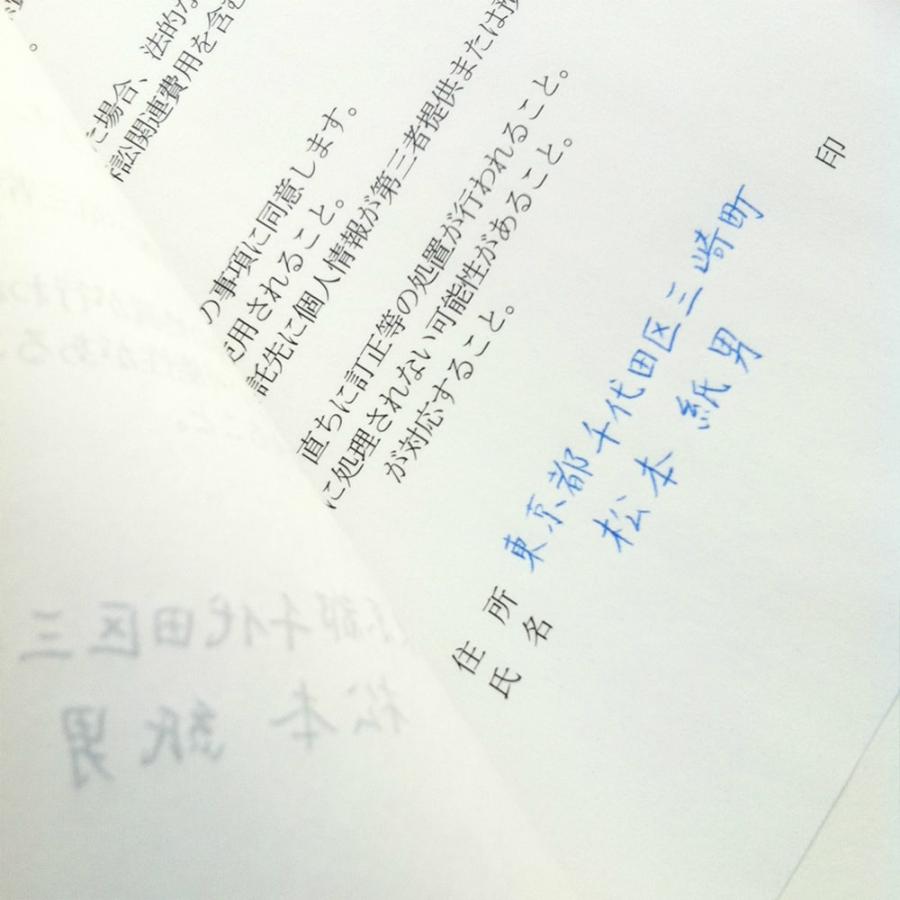 場合、法的な
訟関連費用を含む
の事項に同意します。
使用されること。
託先に個人情報が第三者提供または預
直ちに訂正等の処置が行われること。
に処理されない可能性があること。
が対応すること。
印
住所 東京都千代田区三崎町
氏名 松本 紙男